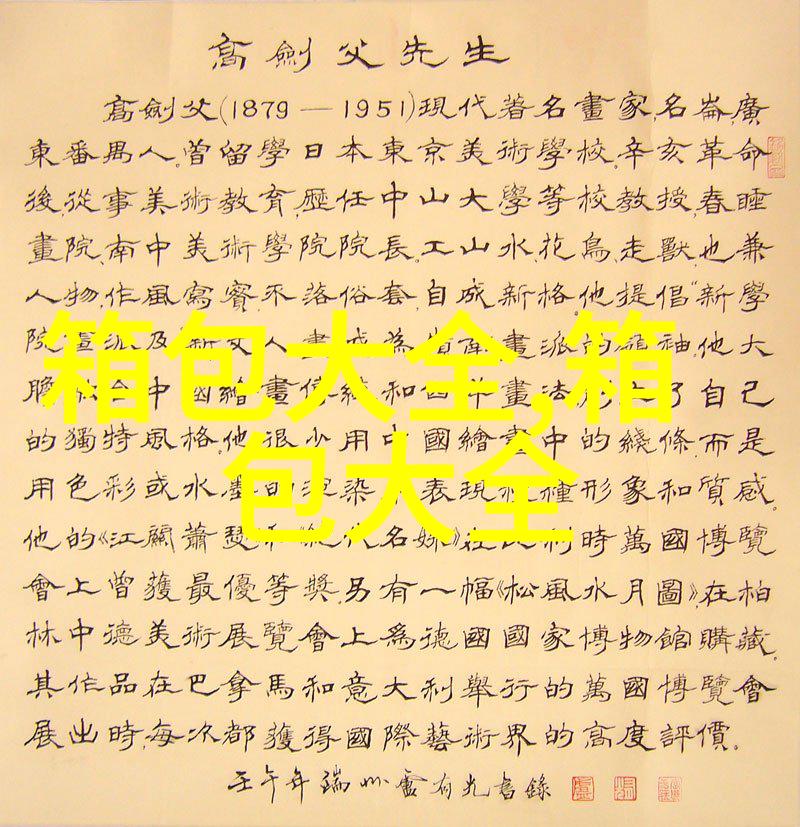 高劍父先生
高劍父(1879—1951)現代著名畫家,名崙,廣
東番禺人。曾留學日本東京美術學校,辛亥革命
後,從事美術教育,歷任中山大學等校教授,春睡
畫院,南中美術學院院長。工山水、花鳥、走獸,也兼
人物,作風寫實,不落俗套,自成新格。他提倡"新學
院畫派及 人畫 成為 畫派的領袖。他大
箱包大全,箱
膽 中國繪畫傳統和西洋畫法 了自己
的獨特風格。他很少用中國繪畫中的綫條,而是
包大全
用色彩或水墨的渲染,表現 種形象和質感。
他的《江關蕭瑟 代名姝》在 利時萬國博覽
會上曾獲最優等獎。另有一幅《松風水月圖》,在柏
林中德美術展覽會上為德國國家博物館購藏。
其作品在巴拿馬和意大利舉行的萬國博覽會
展出時,每次都獲得國際藝術界的高度評價。
壬午年端州盧有光書錄